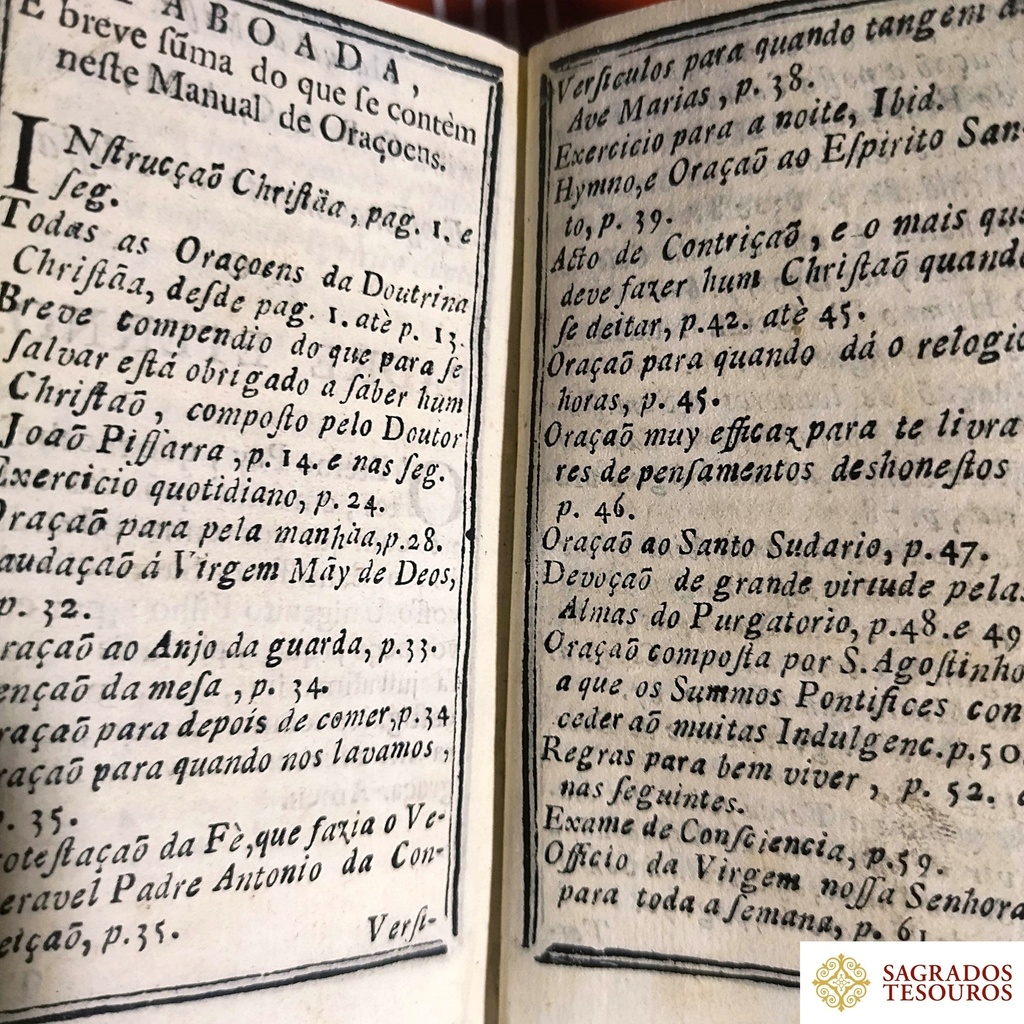 TABOADA,
E breve ſũma do que ſe contèm
neſte Manual de Oraçoens.
INſtrucçaõ Chriſtãa, pag. 1. e
ſeg.
Todas as Oraçoens da Doutrina
Chriſtãa, deſde pag. 1. atè p. 13.
Breve compendio do que para ſe
ſalvar eſtá obrigado a ſaber hum
Chriſtaõ, compoſto pelo Doutor
Joaõ Piſſarra, p. 14. e nas ſeg.
Exercicio quotidiano, p. 24.
Oraçaõ para pela manhãa, p. 28.
audaçaõ á Virgem Mãy de Deos,
p. 32.
raçaõ ao Anjo da guarda, p. 33.
ençaõ da meſa, p. 34.
raçaõ para depois de comer, p. 34
raçaõ para quando nos lavamos,
p. 35.
oteſtaçaõ da Fè, que fazia o Ve-
eravel Padre Antonio da Con-
eiçaõ, p. 35.
Verſi-
Verſiculos para quando tangem
Ave Marias, p. 38.
Exercicio para a noite, Ibid.
Hymno, e Oraçaõ ao Eſpirito San-
to, p. 39.
Acto de Contriçaõ, e o mais que
deve fazer hum Chriſtaõ quando
ſe deitar, p. 42. atè 45.
Oraçaõ para quando dá o relogio
horas, p. 45.
Oraçaõ muy efficaz para te livra
res de penſamentos deshoneſtos
p. 46.
Oraçaõ ao Santo Sudario, p. 47.
Devoçaõ de grande virtude pelas
Almas do Purgatorio, p. 48. e 49
Oraçaõ compoſta por S. Agoſtinho
a que os Summos Pontifices con
cederaõ muitas Indulgenc. p. 50.
Regras para bem viver, p. 52. e
nas ſeguintes.
Exame de Conſciencia, p. 59.
Officio da Virgem noſſa Senhora
para toda a ſemana, p. 61
SAGRADOS
TESOUROS